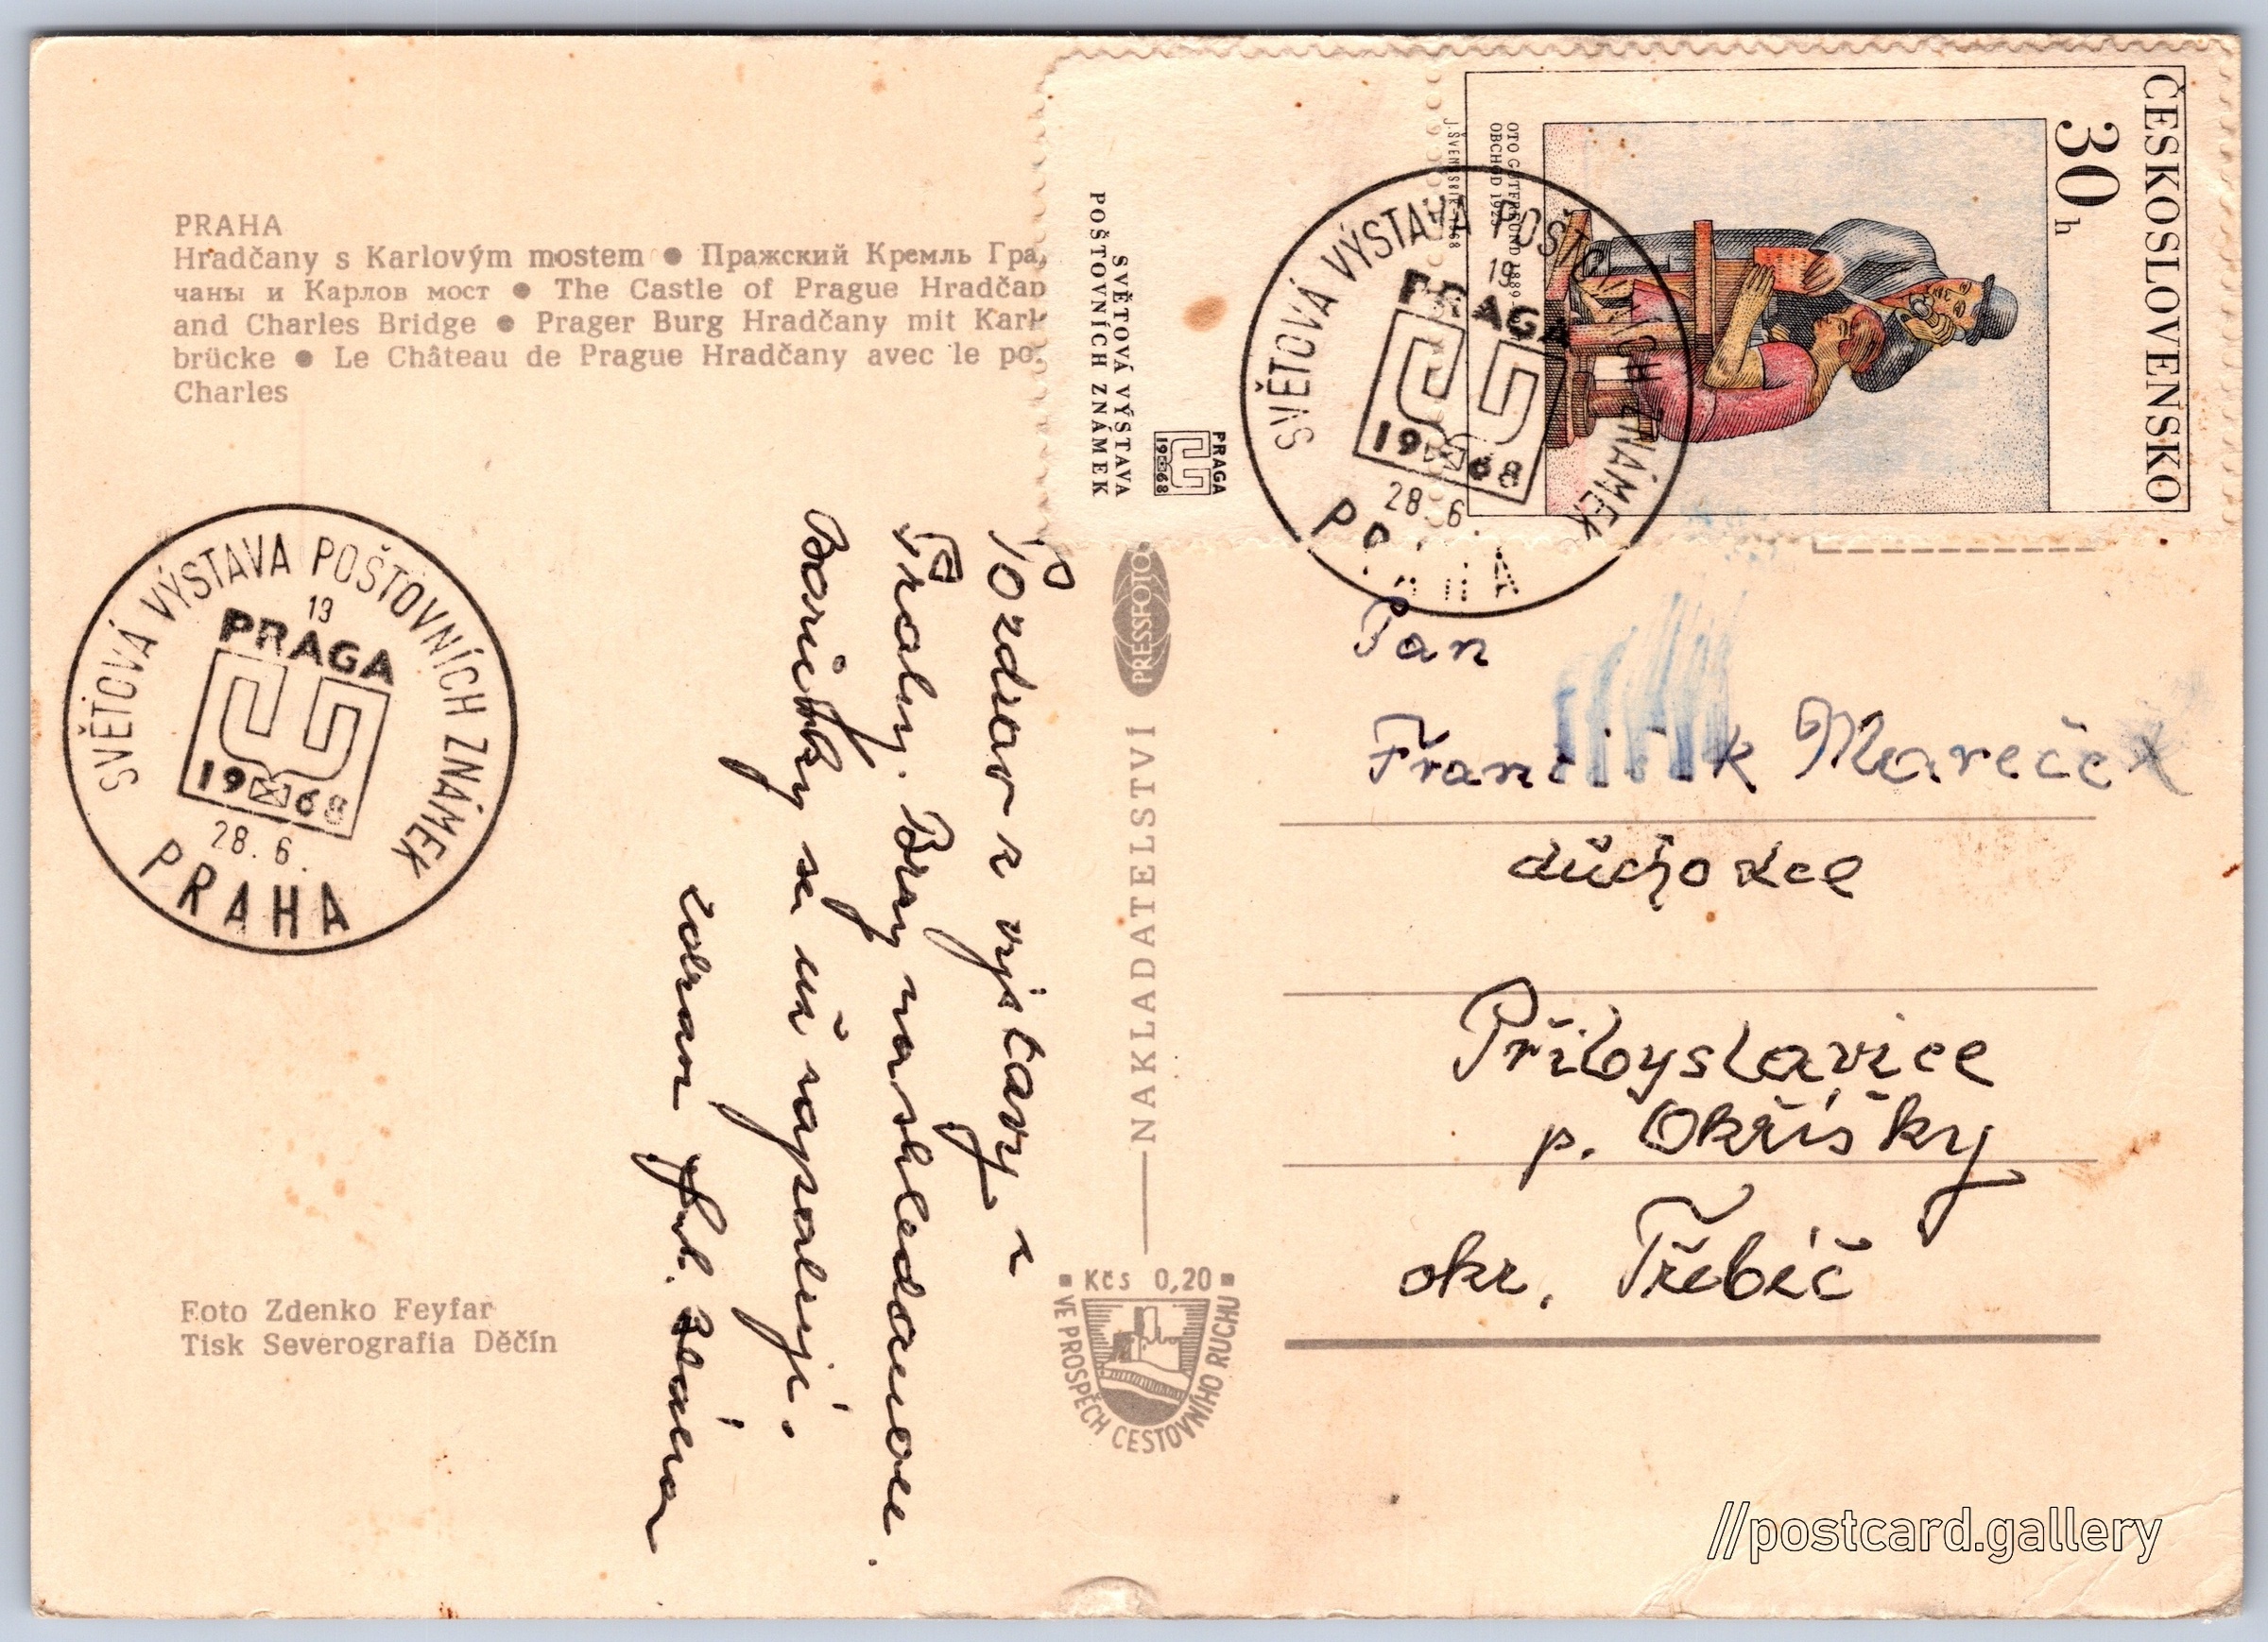 PRAHA
Hradčany s Karlovým mostem ● Пражский Кремль Гра
чаны и Карлов мост ● The Castle of Prague Hradčan
and Charles Bridge ● Prager Burg Hradčany mit Karl
brücke ● Le Château de Prague Hradčany avec le po
Charles
SVĚTOVÁ VÝSTAVA POŠTOVNÍCH ZNÁMEK
19
PRAGA
1968
28.6.
PRAHA
Foto Zdenko Feyfar
Tisk Severografia Děčín
Pozdrav z výstavy z
Prahy. Brzy nashledanou.
Barižky se už
zdraví
PRESSFOTO
NAKLADATELSTVÍ
Kčs 0,20
VE PROSPĚCH CESTOVNÍHO RUCHU
SVĚTOVÁ VÝSTAVA
POŠTOVNÍCH ZNÁMEK
PRAGA
1968
ČESKOSLOVENSKO
30 h
OTO GUTFREUND 1889-
OBCHOD 1923
J. ŠVENGSBÍR 1968
SVĚTOVÁ VÝSTAVA POŠTOVNÍCH ZNÁMEK
19
PRAGA
1968
28.6.
PRAHA
Pan
František Mareček
důchodce
Přibyslavice
p. Okříšky
okr. Třebíč
//postcard.gallery